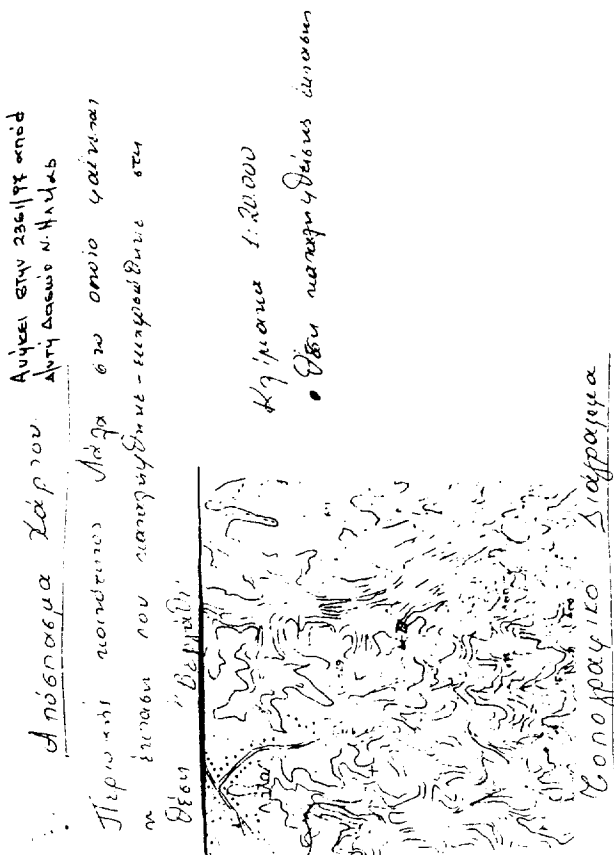 Απόσπασμα Χάρτου
Ανήκει στην 2361/97 από
Δ/ντή Δασών Ν. Ηλείας
Περιοχής κοινότητας Λάλα στο οποίο φαίνεται
η έκταση που καταλήφθηκε - εκχερσώθηκε στη
θέση "Βερβάθι"
Κλίμακα 1:20.000
• Θέση καταληφθείσης έκτασης
Λάλας
Τοπογραφικό Διάγραμμα